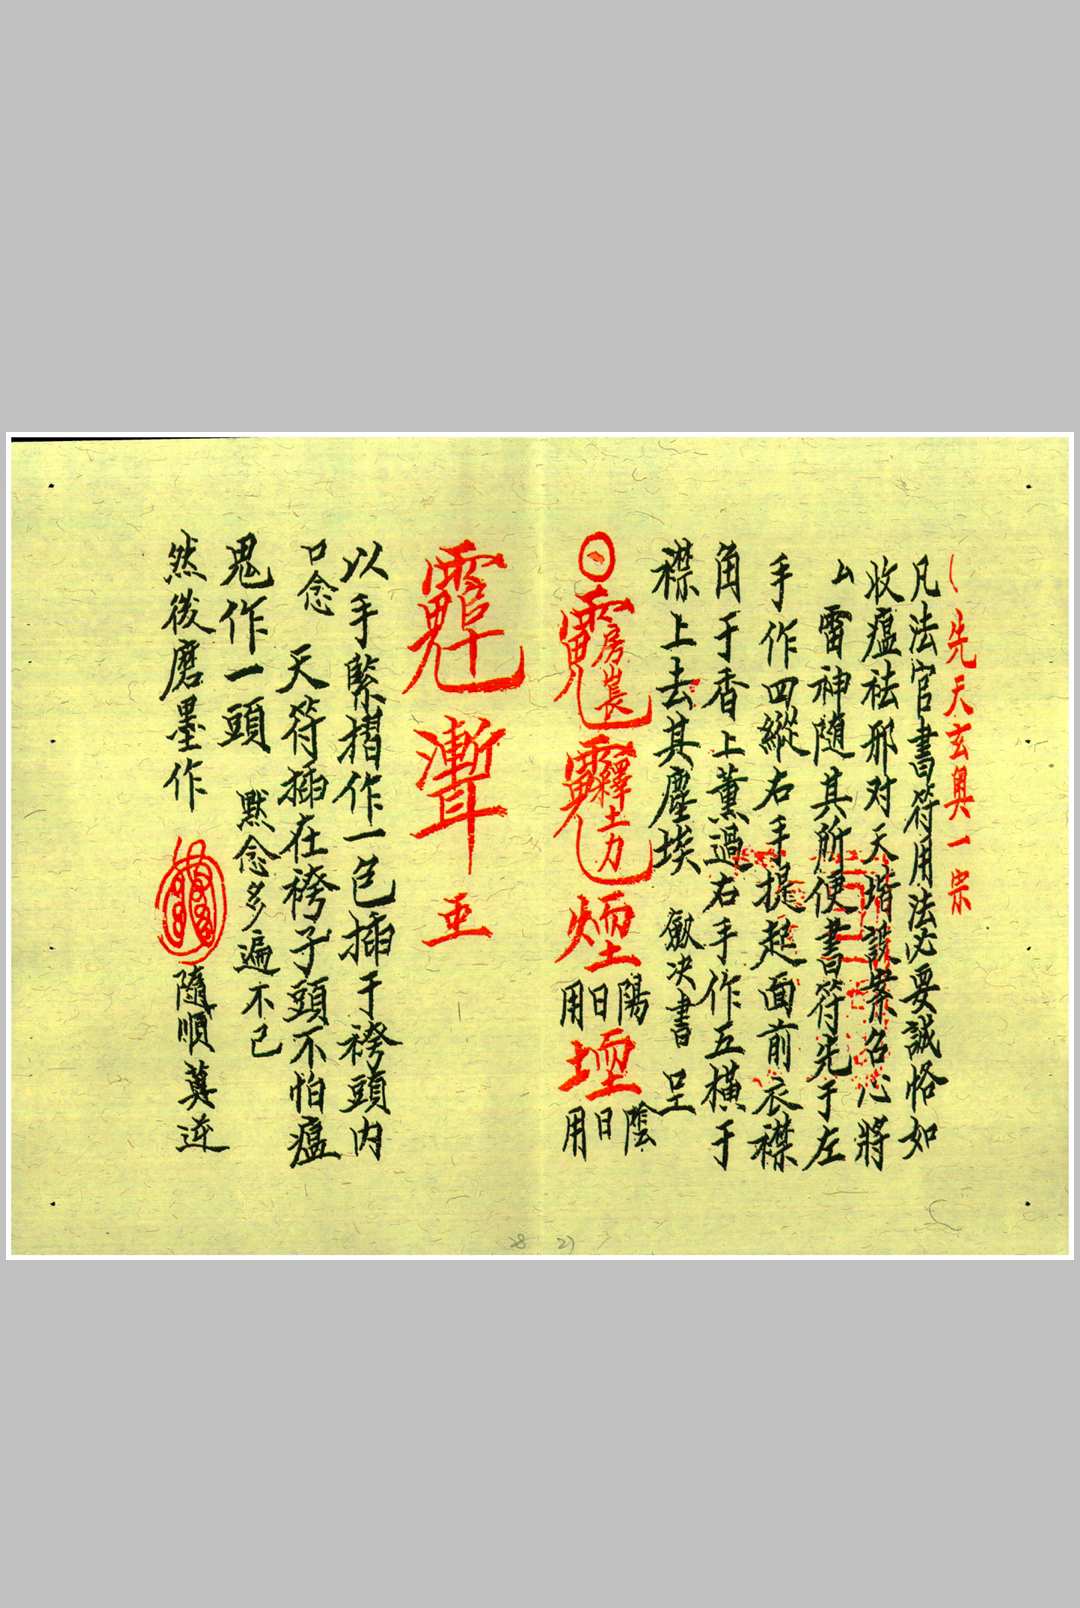 先天玄奥一宗
凡法官書符用法必要誠恪如
收瘟祛邪对天堦設案名心將
厶雷神隨其所便書符先于左
手作四縱右手提起面前衣襟
角于香上薰過右手作五橫于
襟上去其塵埃 劍决書
煙 陽日用 堙 陰日用
亚
以手緊摺作一色插于袴頭内
口念 天符插在袴子頭不怕瘟
鬼作一頭 默念多遍不已
然後磨墨作 隨順